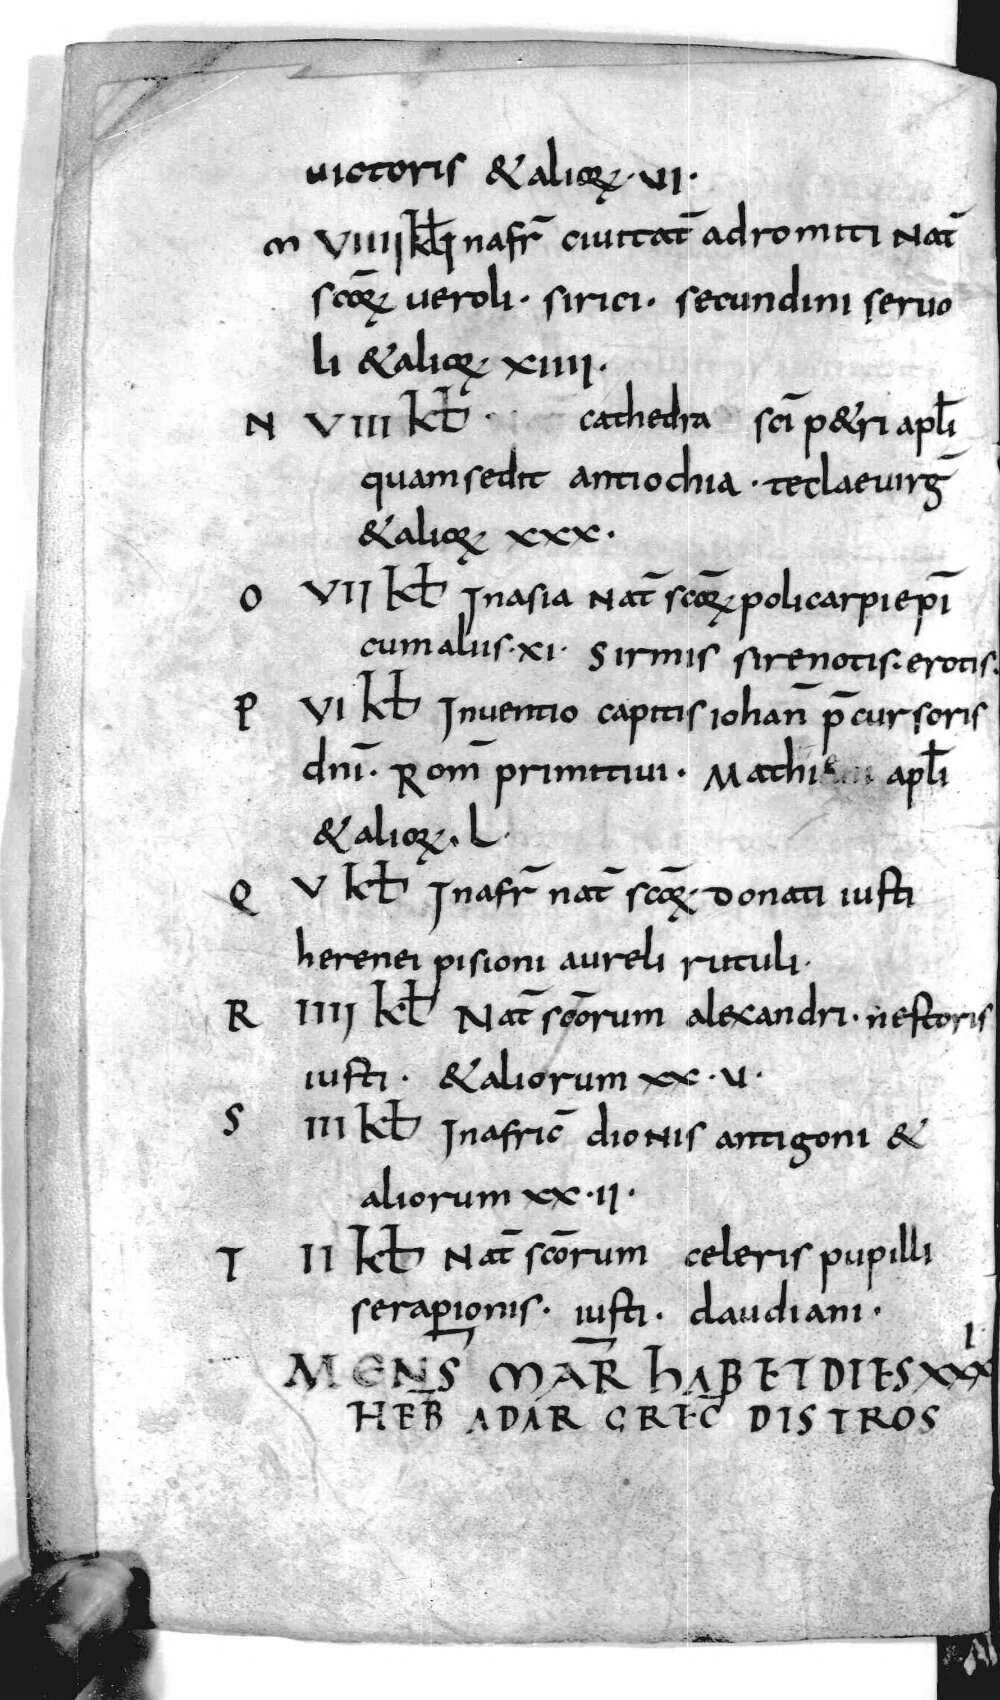 uictoris &alioꝝ · ui ·
m VIIII kł Inafr̄ ciuitat̄ adromiti Nat̄
scōꝝ ueroli · sirici · secundini seruo
li &alioꝝ xiiii ·
N VIII kł · cathedra sc̄i p&ri apłi
quamsedit antiochia · teclaeuirḡ
&alioꝝ xxx ·
O VII kł Inasia Nat̄ scōꝝ policarpiepī
cumaliis · xi · Sirmis sirenotis · erotis ·
P VI kł Inuentio capitis iohan̄ p̄cursoris
dnī · Rom̄ primitiui · apłi
&alioꝝ · L ·
Q V kł Inafr̄ nat̄ scōꝝ donati iusti
herenei pisioni aureli rutuli ·
R IIII kł Nat̄ scōrum alexandri · nestoris
iusti · &aliorum xx · u ·
S III kł Inafric̄ dionis antigoni &
aliorum xx · ii ·
T II kł Nat̄ scōrum celeris pupilli
serapionis · iusti · claudiani ·
MENS̄ MAR̄ hABET DIES XXXI
HEB̄ ADAR GREC̄ DISTROS